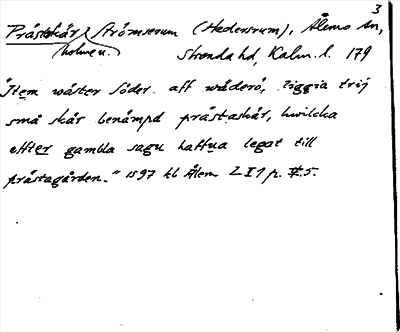 3
Prästskär) Strömserum (Hedersrum), Ålems sn,
holmen. Stranda hd, Kalm. l. 179
"Item wäster söder aff wåderö, liggia trij
små skär benämpd prästaskär, hwilcka
efter gambla sagu haffua legat till
prästagården." 1597 kb Ålem L I 1 p. 5.